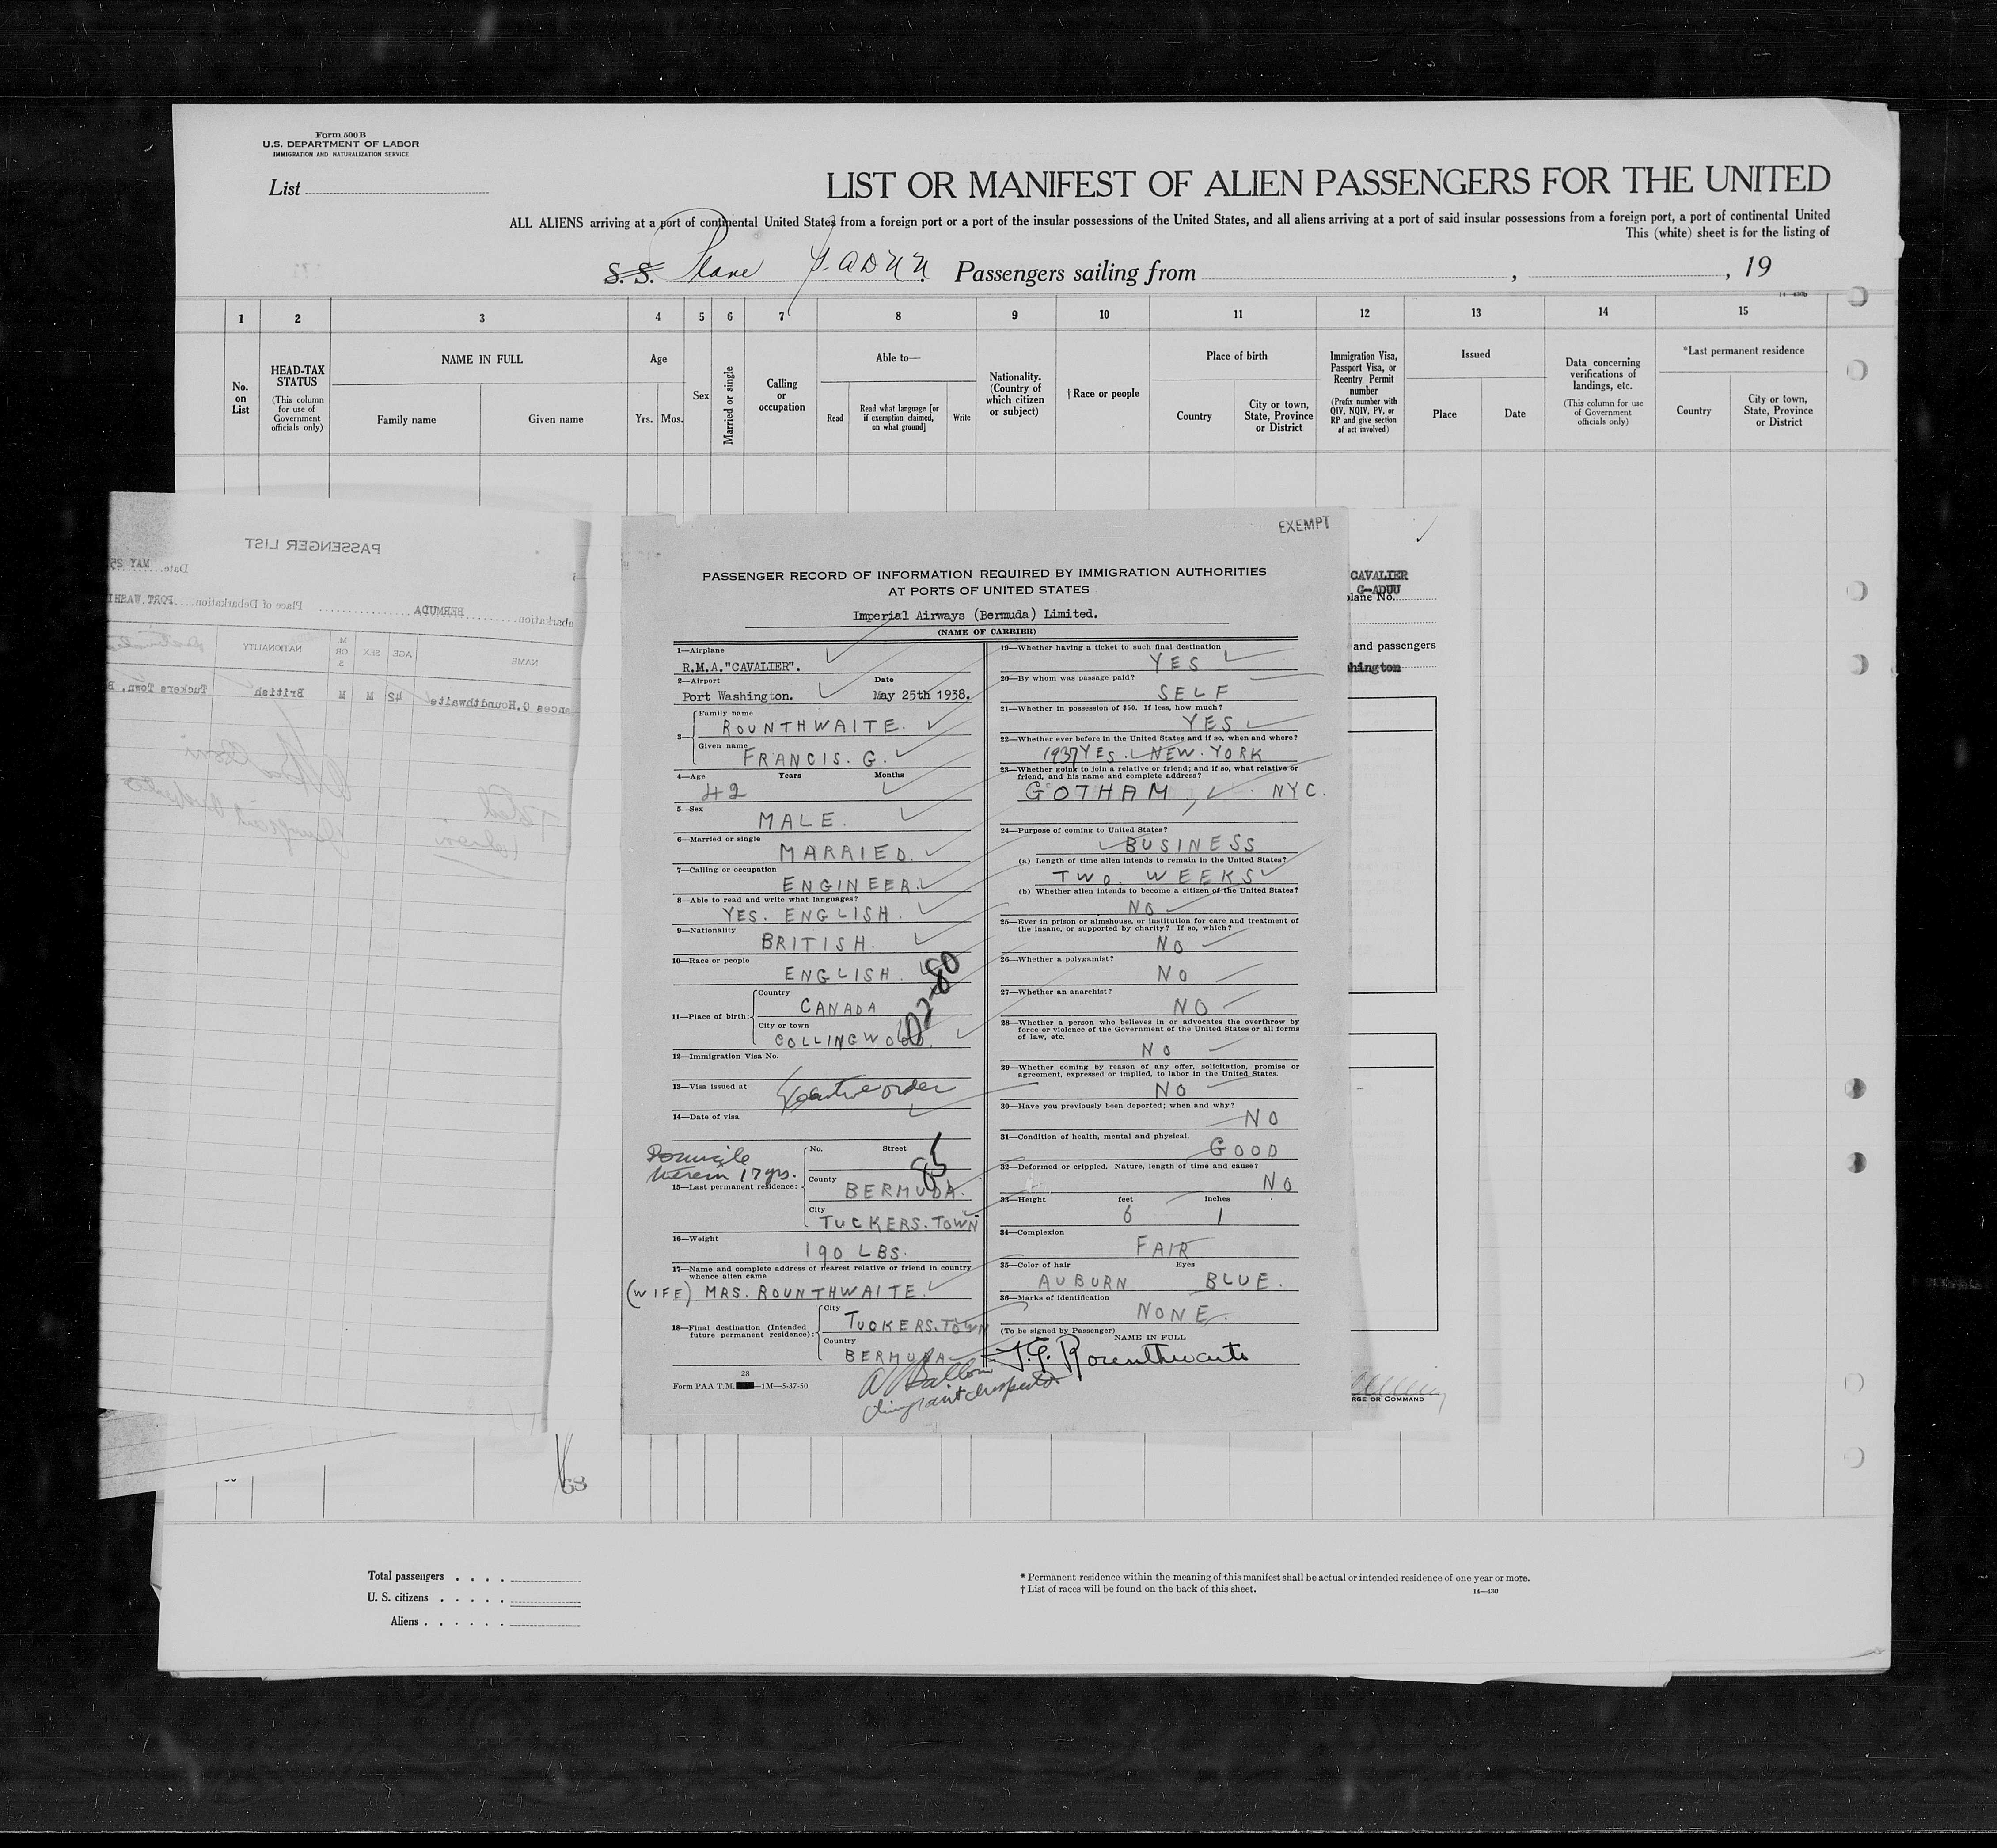 Form 500 B
U.S. DEPARTMENT OF LABOR
IMMIGRATION AND NATURALIZATION SERVICE
List
LIST OR MANIFEST OF ALIEN PASSENGERS FOR THE UNITED
ALL ALIENS arriving at a port of continental United States from a foreign port or a port of the insular possessions of the United States, and all aliens arriving at a port of said insular possessions from a foreign port, a port of continental United
This (white) sheet is for the listing of
S. S. Plane G-ADUU Passengers sailing from , , 19
14-430b
1 2 3 4 5 6 7 8 9 10 11 12 13 14 15
No. on List
HEAD-TAX STATUS
(This column for use of Government officials only)
NAME IN FULL
Family name
Given name
Age
Yrs. Mos.
Sex
Married or single
Calling or occupation
Able to—
Read
Read what language [or if exemption claimed, on what ground]
Write
Nationality. (Country of which citizen or subject)
†Race or people
Place of birth
Country
City or town, State, Province or District
Immigration Visa, Passport Visa, or Reentry Permit number
(Prefix number with QIV, NQIV, PV, or RP and give section of act involved)
Issued
Place
Date
Data concerning verifications of landings, etc.
(This column for use of Government officials only)
*Last permanent residence
Country
City or town, State, Province or District
PASSENGER LIST
Date MAY 25
mbarkation BERMUDA Place of Debarkation PORT WASHI
NAME AGE SEX M. OR S. NATIONALITY
ances G.Rounthwaite 42 M M British Tuckers Town, B
EXEMPT
PASSENGER RECORD OF INFORMATION REQUIRED BY IMMIGRATION AUTHORITIES
AT PORTS OF UNITED STATES
Imperial Airways (Bermuda) Limited.
(NAME OF CARRIER)
1—Airplane
R.M.A."CAVALIER".
2—Airport Date
Port Washington. May 25th 1938.
3— Family name
ROUNTHWAITE.
Given name
FRANCIS. G.
4—Age Years Months
42
5—Sex
MALE.
6—Married or single
MARRIED.
7—Calling or occupation
ENGINEER.
8—Able to read and write what languages?
YES. ENGLISH.
9—Nationality
BRITISH.
10—Race or people
ENGLISH.
11—Place of birth: Country
CANADA
City or town
COLLINGWOOD.
12—Immigration Visa No.
13—Visa issued at
Executive order
14—Date of visa
Domicile
therein 17 yrs.
15—Last permanent residence: No. Street
County
BERMUDA.
City
TUCKERS. TOWN
85
16—Weight
190 LBS.
17—Name and complete address of nearest relative or friend in country
whence alien came
(WIFE) MRS. ROUNTHWAITE.
18—Final destination (Intended
future permanent residence): City
TUCKERS. TOWN
Country
BERMUDA
28
Form PAA T.M. —1M—5-37-50
19—Whether having a ticket to such final destination
YES
20—By whom was passage paid?
SELF
21—Whether in possession of $50. If less, how much?
YES
22—Whether ever before in the United States and if so, when and where?
1937 YES. NEW. YORK
23—Whether going to join a relative or friend; and if so, what relative or
friend, and his name and complete address?
GOTHAM, NYC.
24—Purpose of coming to United States?
BUSINESS
(a) Length of time alien intends to remain in the United States?
TWO. WEEKS
(b) Whether alien intends to become a citizen of the United States?
NO
25—Ever in prison or almshouse, or institution for care and treatment of
the insane, or supported by charity? If so, which?
NO
26—Whether a polygamist?
NO
27—Whether an anarchist?
NO
28—Whether a person who believes in or advocates the overthrow by
force or violence of the Government of the United States or all forms
of law, etc.
NO
29—Whether coming by reason of any offer, solicitation, promise or
agreement, expressed or implied, to labor in the United States.
NO
30—Have you previously been deported; when and why?
NO
31—Condition of health, mental and physical.
GOOD
32—Deformed or crippled. Nature, length of time and cause?
NO
33—Height feet inches
6 1
34—Complexion
FAIR
35—Color of hair Eyes
AUBURN BLUE.
36—Marks of identification
NONE.
(To be signed by Passenger)
NAME IN FULL
F. G. Rounthwaite
CAVALIER
G-ADUU
plane No.
and passengers
shington
RGE OR COMMAND
68
Total passengers
U. S. citizens
Aliens
* Permanent residence within the meaning of this manifest shall be actual or intended residence of one year or more.
† List of races will be found on the back of this sheet.
14—430